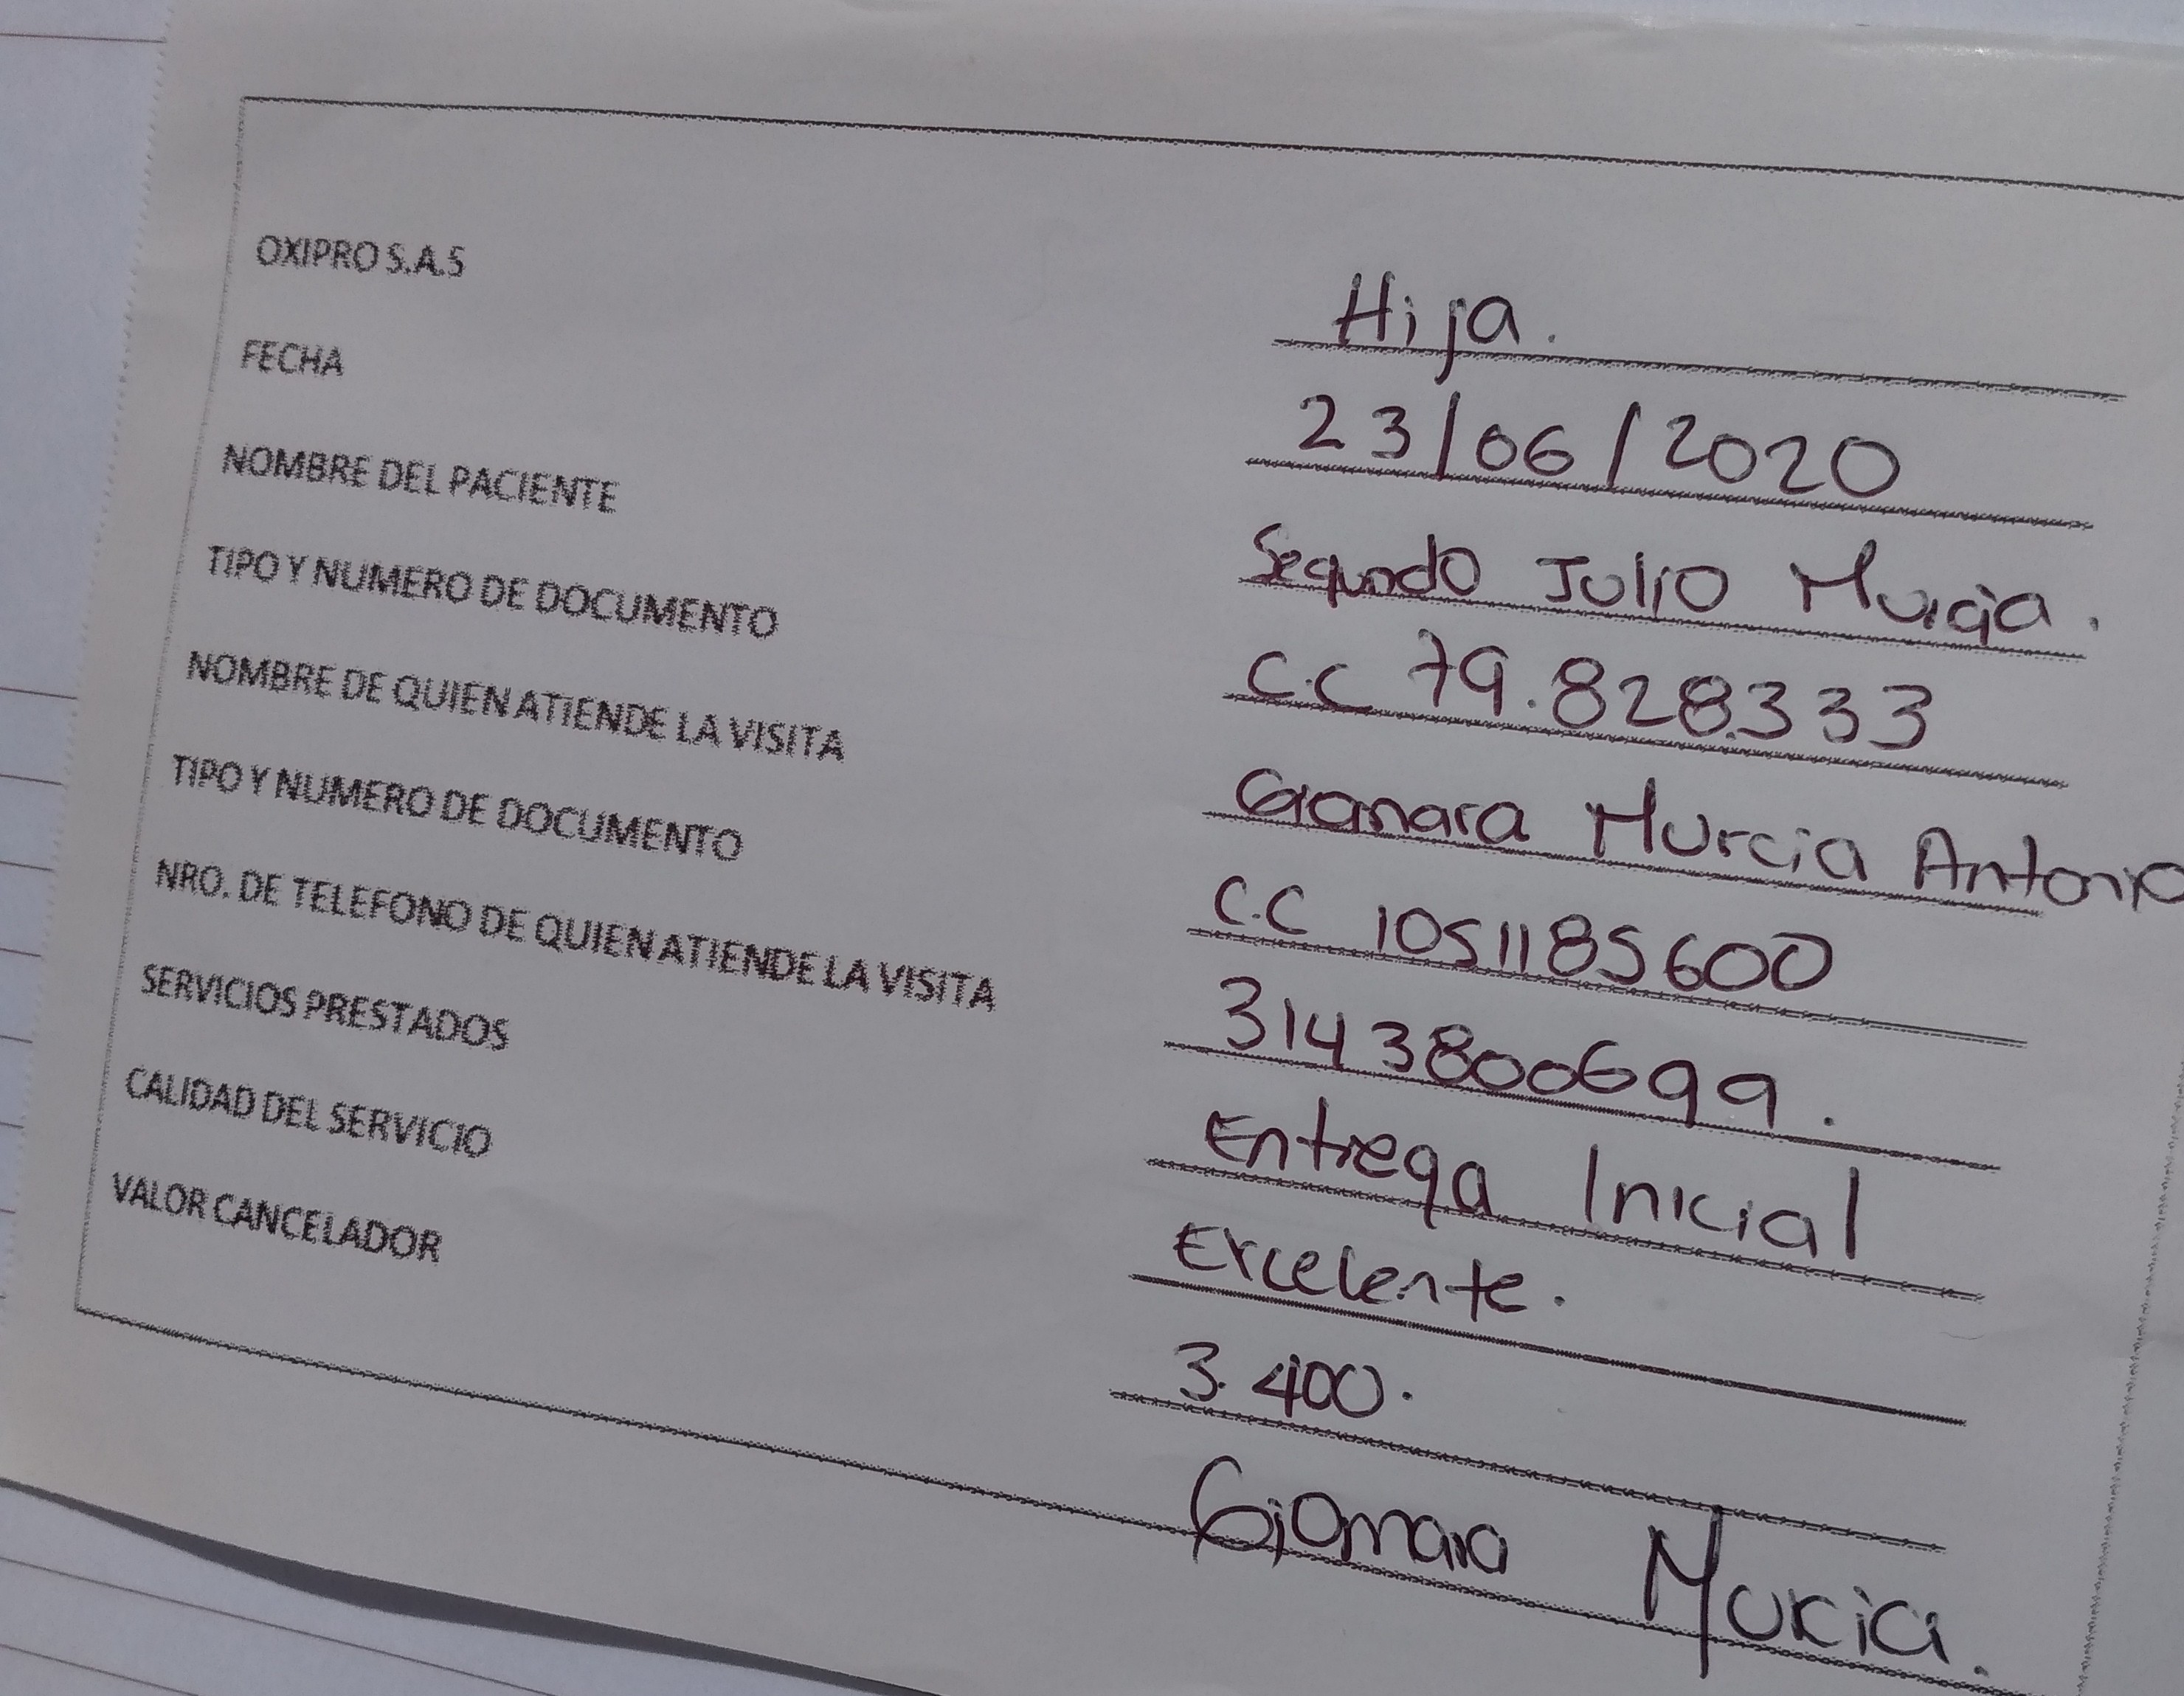 OXIPRO S.A.S Hija.
FECHA 23/06/2020
NOMBRE DEL PACIENTE Segundo Julio Murcia.
TIPO Y NUMERO DE DOCUMENTO C.C 79.828.333
NOMBRE DE QUIEN ATIENDE LA VISITA Murcia Antonio
TIPO Y NUMERO DE DOCUMENTO C.C 1051185600
NRO. DE TELEFONO DE QUIEN ATIENDE LA VISITA 3143800699.
SERVICIOS PRESTADOS Entrega Inicial
CALIDAD DEL SERVICIO Excelente.
VALOR CANCELADOR 3.400.
Giomara Murcia.